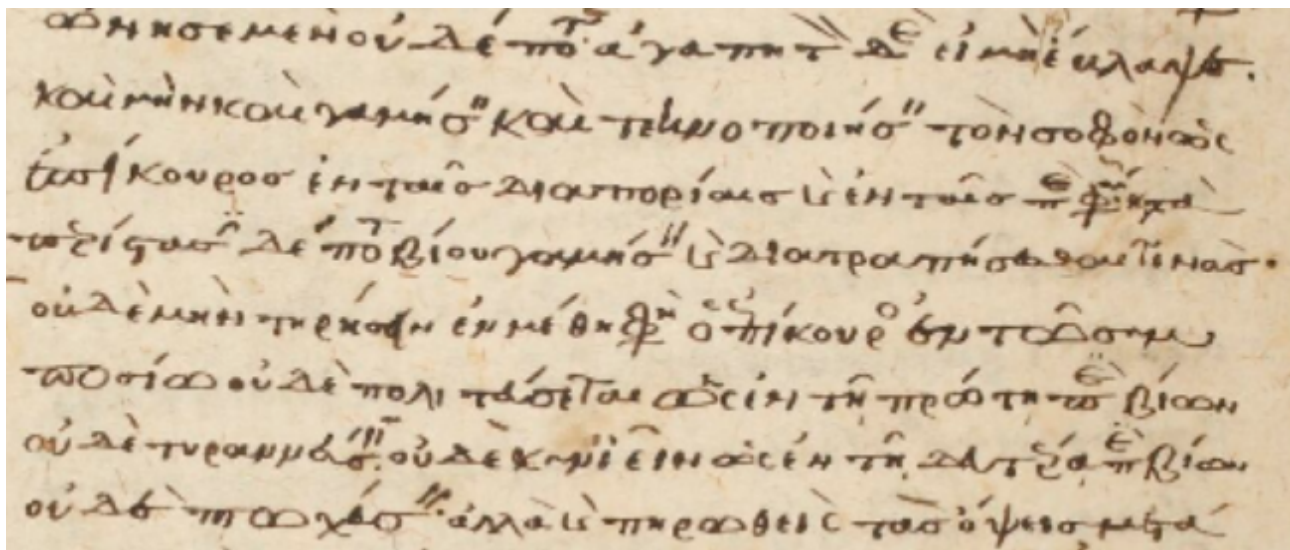 ὤνησε μὲν οὐδέποτε ἀγαπητὸν δὲ εἰ μὴ ἔβλαψε.
καὶ μὴν καὶ γαμήσειν καὶ τεκνοποιήσειν τὸν σοφὸν ὡς
ἐπίκουρος ἐν ταῖς διαπορίαις καὶ ἐν ταῖς περὶ φύσεως κατὰ
περίστασιν δέ ποτε βίου γαμήσειν καὶ διατραπήσεσθαι τινάς.
οὐδὲ μὴν τηρήσειν ἐν μέθη φησὶν ὁ ἐπίκουρος ἐν τῶ συμ
ποσίω οὐδὲ πολιτεύσεται ὡς ἐν τῆ πρώτη περὶ βίων
οὐδὲ τυραννεύσειν. οὐδὲ κυνιεῖν ὡς ἐν τῆ δευτέρα περὶ βίων
οὐδὲ πτωχεύσειν. ἀλλὰ καὶ πηρωθεὶς τὰς ὄψεις μετα